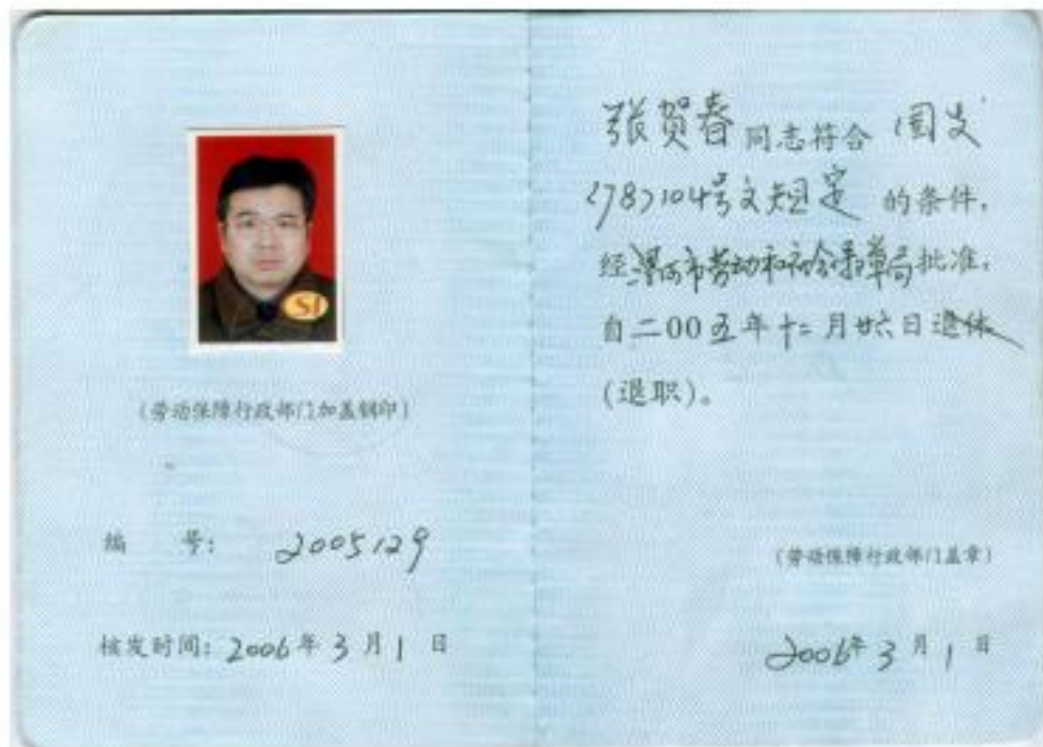 SI
(劳动保障行政部门加盖钢印)
编 号: 2005129
核发时间: 2006年3月1日
张贺春同志符合国发
〈78〉104号文规定的条件,
经漯河市劳动和社会保障局批准,
自二00五年十二月廿六日退休
(退职)。
(劳动保障行政部门盖章)
2006年3月1日